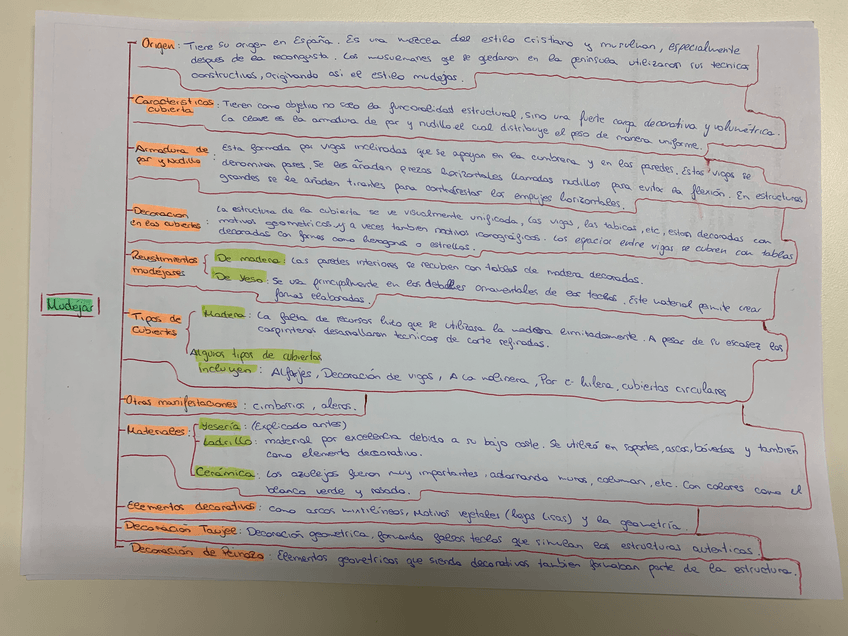 Origen: Tiene su origen en España. Es una mezcla del estilo cristiano y musulman, especialmente
despues de la reconquista. Los musulmanes qe se quedaron en la peninsula utilizaron sus tecnicas
constructivas, originando asi el estilo mudejar.
Caracteristicas cubierta: Tienen como objetivo no solo la funcionalidad estructural, sino una fuerte carga decorativa y volumétrica.
La clave es la armadura de par y nudillo el cual distribuye el peso de manera uniforme.
Armadura de par y Nudillo: Esta formada por vigas inclinadas que se apoyan en la cumbrera y en las paredes. Estas vigas se
denominan pares. Se les añaden piezas horizontales llamadas nudillos para evitar la flexión. En estructuras
grandes se le añaden tirantes para contrarrestar los empujes horizontales.
Decoracion en las cubiertas: La estructura de la cubierta se ve visualmente unificada, las vigas, las tabicas, etc, estan decoradas con
motivos geometricos, y a veces tambien motivos iconográficos. Los espacios entre vigas se cubren con tablas
decoradas con formas como hexagonos o estrellas.
Revestimientos mudéjares
De madera: Las paredes interiores se recubren con tablas de madera decoradas.
De Yeso: Se usa principalmente en los detalles ornamentales de los techos. Este material permite crear
formas elaboradas.
Mudejar
Tipos de cubiertas
Madera: La falta de recursos hizo que se utilizase la madera limitadamente. A pesar de su escasez los
carpinteros desarrollaron tecnicas de corte refinadas.
Algunos tipos de cubiertas
incluyen: Alfarjes, Decoración de vigas, A La molinera, Par e hilera, cubiertas circulares
Otras manifestaciones: cimborrios, aleros.
Materiales:
Yesería: (Explicado antes)
Ladrillo: material por excelencia debido a su bajo coste. Se utilizó en soportes, arcos, bóvedas y también
como elemento decorativo.
Cerámica: Los azulejos fueron muy importantes, adornando muros, columan, etc. Con colores como el
blanco verde y rosado.
Elementos decorativos: como arcos mixtilíneos, Motivos vegetales (hojas lisas) y la geometría.
Decoración Taujel: Decoración geometrica, formando falsos techos que simulan las estructuras autenticas.
Decoración de Peinazo: Elementos geometricos que siendo decorativos tambien formaban parte de la estructura.